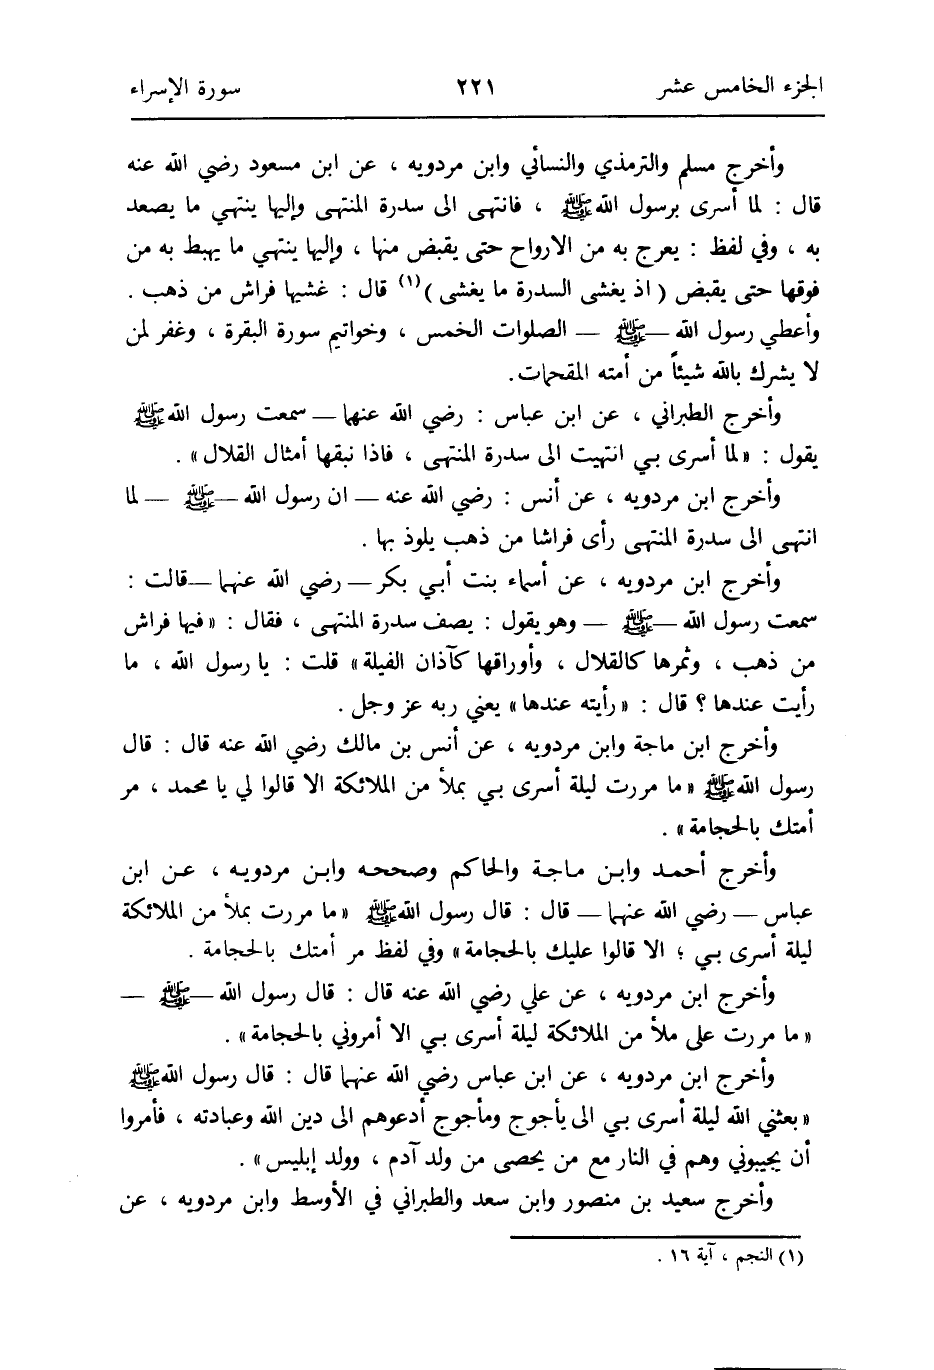 الجزء الخامس عشر ٢٢١ سورة الإسراء
وأخرج مسلم والترمذي والنسائي وابن مردويه ، عن ابن مسعود رضي الله عنه
قال : لما أسرى برسول الله ﷺ ، فانتهى الى سدرة المنتهى وإليها ينتهي ما يصعد
به ، وفي لفظ : يعرج به من الارواح حتى يقبض منها ، وإليها ينتهي ما يهبط به من
فوقها حتى يقبض ( اذ يغشى السدرة ما يغشى )(١) قال : غشيها فراش من ذهب .
وأعطي رسول الله — ﷺ — الصلوات الخمس ، وخواتيم سورة البقرة ، وغفر لمن
لا يشرك بالله شيئاً من أمته المقحمات.
وأخرج الطبراني ، عن ابن عباس : رضي الله عنهما — سمعت رسول الله ﷺ
يقول : «لما أسرى بي انتهيت الى سدرة المنتهى ، فاذا نبقها أمثال القلال» .
وأخرج ابن مردويه ، عن أنس : رضي الله عنه — ان رسول الله — ﷺ — لما
انتهى الى سدرة المنتهى رأى فراشا من ذهب يلوذ بها .
وأخرج ابن مردويه ، عن أسماء بنت أبي بكر — رضي الله عنهما — قالت :
سمعت رسول الله — ﷺ — وهو يقول : يصف سدرة المنتهى ، فقال : «فيها فراش
من ذهب ، وثمرها كالقلال ، وأوراقها كآذان الفيلة» قلت : يا رسول الله ، ما
رأيت عندها ؟ قال : «رأيته عندها» يعني ربه عز وجل .
وأخرج ابن ماجة وابن مردويه ، عن أنس بن مالك رضي الله عنه قال : قال
رسول الله ﷺ «ما مررت ليلة أسرى بي بملأ من الملائكة الا قالوا لي يا محمد ، مر
أمتك بالحجامة» .
وأخرج أحمد وابن ماجة والحاكم وصححه وابن مردويه ، عن ابن
عباس — رضي الله عنهما — قال : قال رسول الله ﷺ «ما مررت بملأ من الملائكة
ليلة أسرى بي ؛ الا قالوا عليك بالحجامة» وفي لفظ مر أمتك بالحجامة .
وأخرج ابن مردويه ، عن علي رضي الله عنه قال : قال رسول الله — ﷺ —
«ما مررت على ملأ من الملائكة ليلة أسرى بي الا أمروني بالحجامة» .
وأخرج ابن مردويه ، عن ابن عباس رضي الله عنهما قال : قال رسول الله ﷺ
«بعثني الله ليلة أسرى بي الى يأجوج ومأجوج أدعوهم الى دين الله وعبادته ، فأمروا
أن يجيبوني وهم في النار مع من يحصى من ولد آدم ، وولد إبليس» .
وأخرج سعيد بن منصور وابن سعد والطبراني في الأوسط وابن مردويه ، عن
(١) النجم ، آية ١٦ .